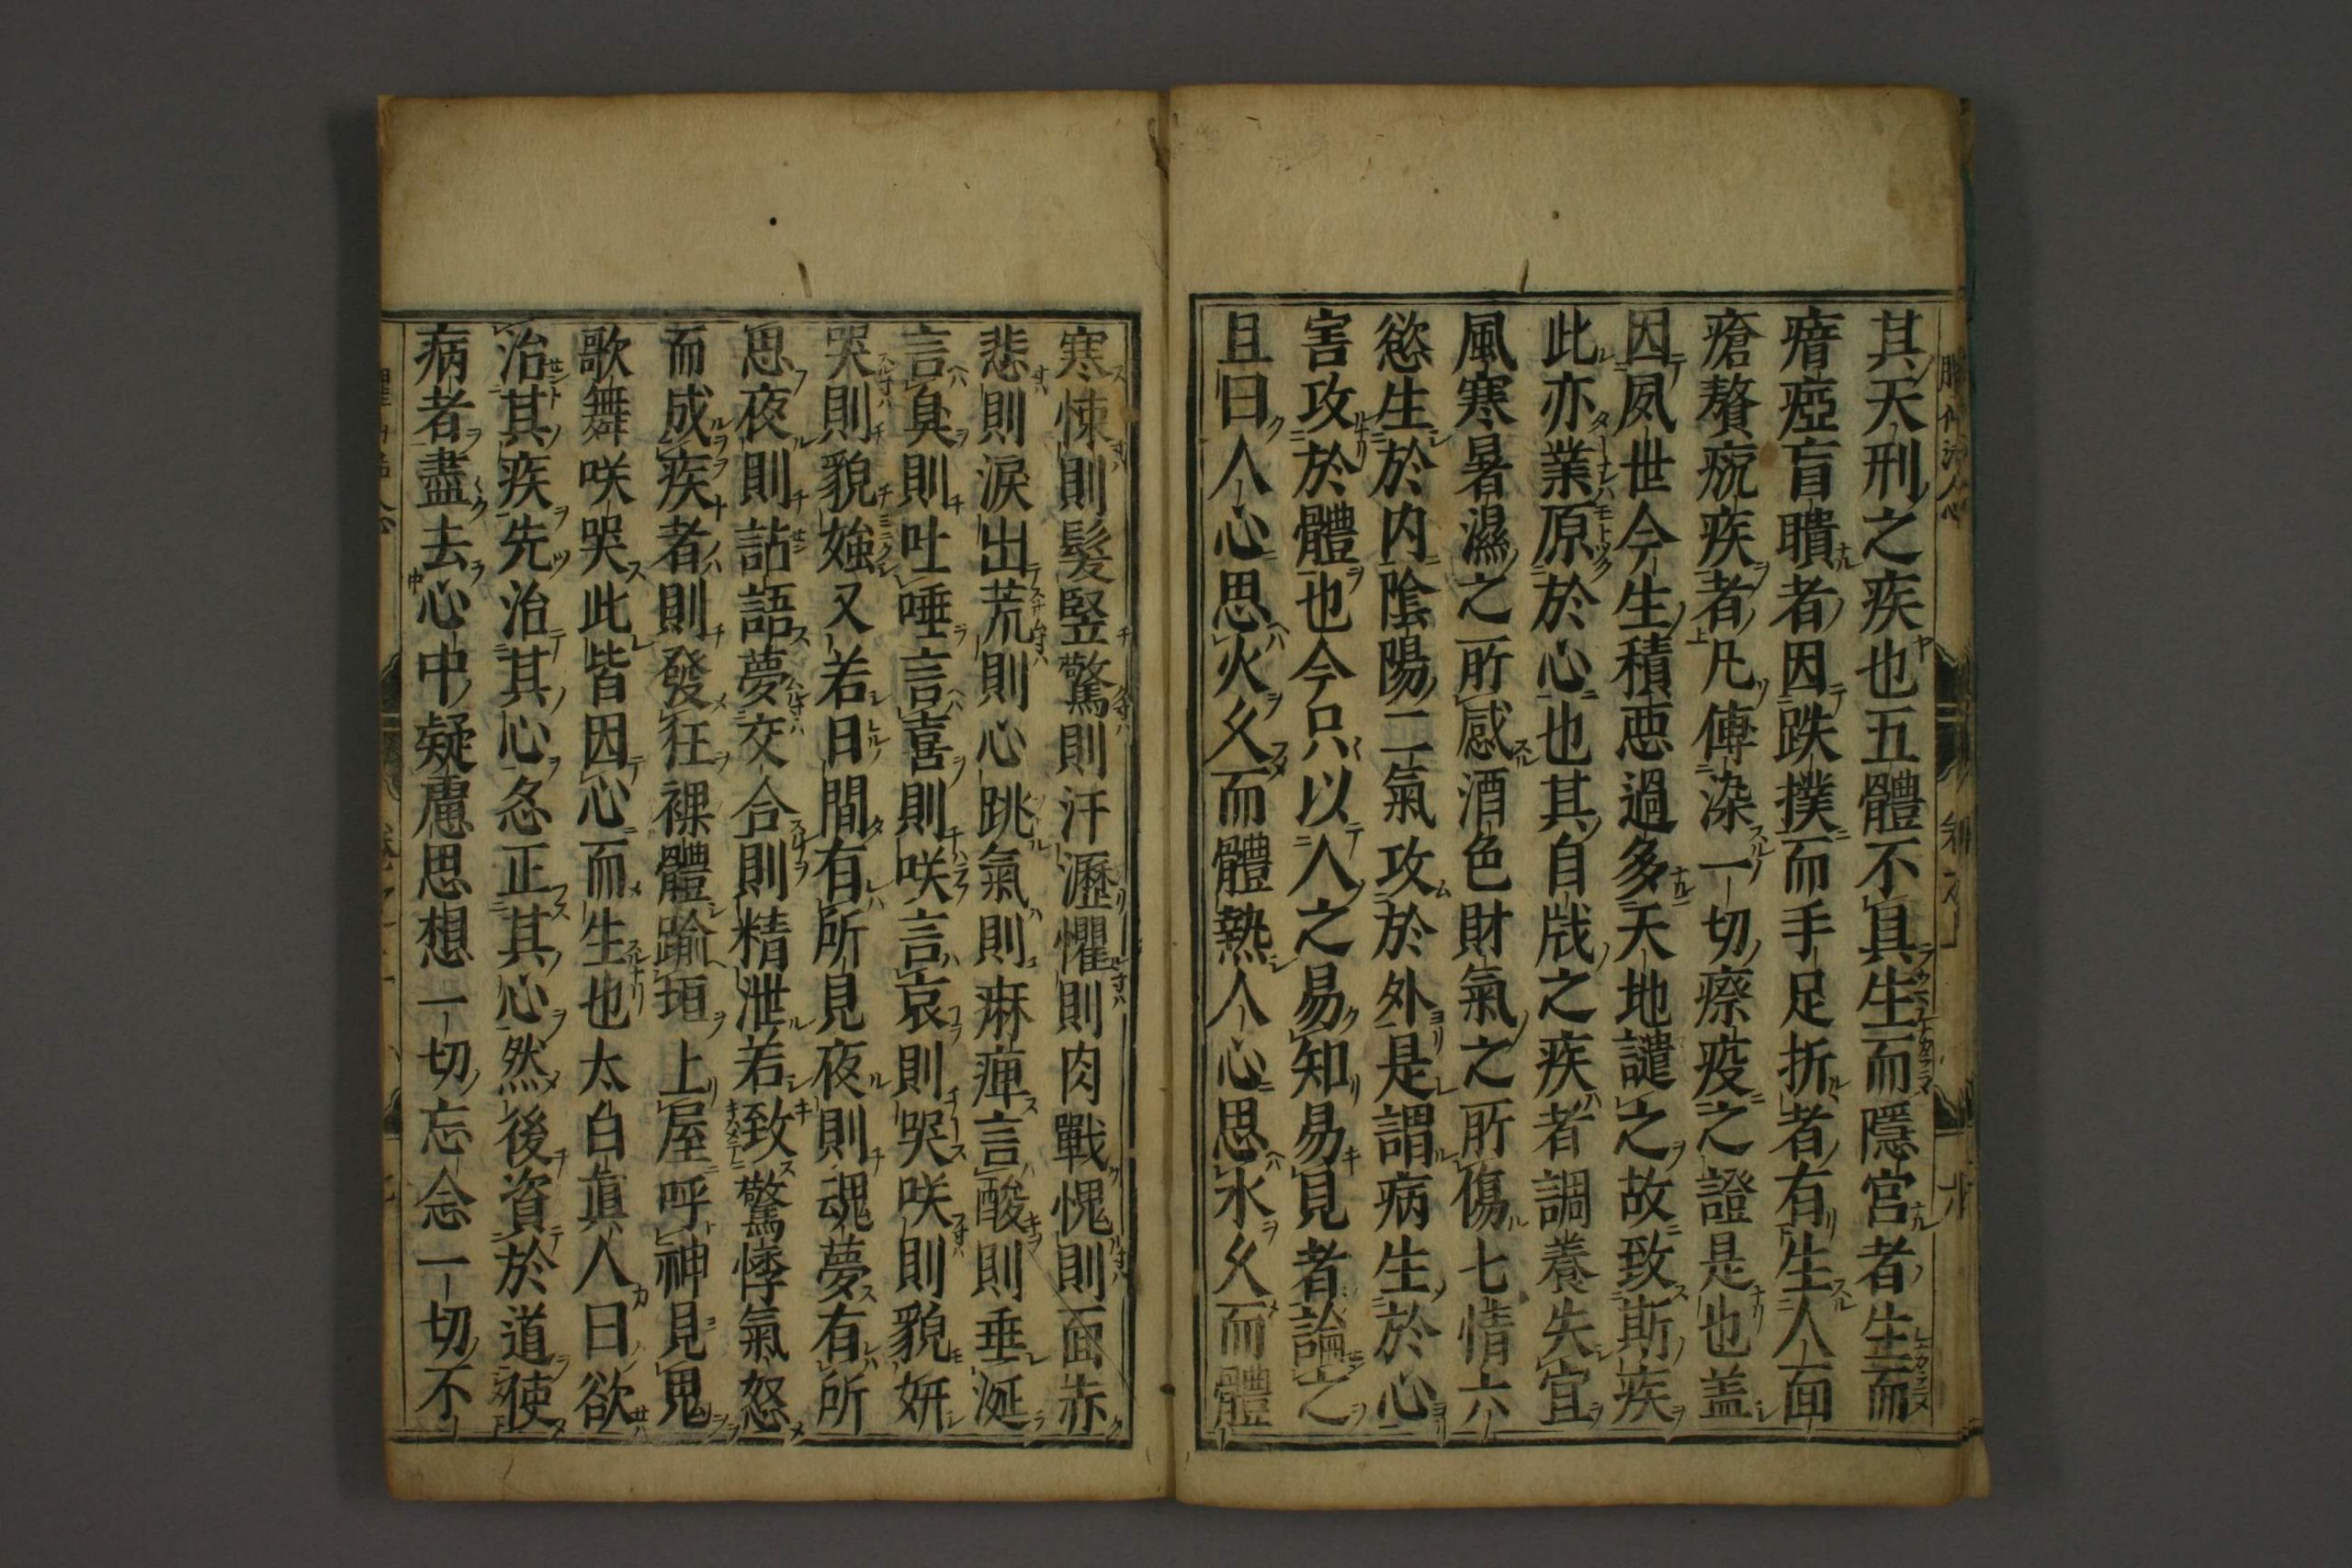 其天刑之疾也五體不具生而隱宮者生而
瘖瘂盲聵者因跌撲而手足折者有生人面
瘡贅疣疾者凡傳染一切瘵疫之證是也盖
因夙世今生積悪過多天地譴之故致斯疾
此亦業原於心也其自戕之疾者調養失宜
風寒暑濕之所感酒色財氣之所傷七情六
慾生於内陰陽二氣攻於外是謂病生於心
害攻於體也今只以人之易知易見者論之
且曰人心思火久而體熱人心思氷久而體
寒悚則髮竪驚則汗瀝懼則肉戰愧則面赤
悲則淚出荒則心跳氣則麻痺言酸則垂涎
言臭則吐唾言喜則咲言哀則哭咲則貌妍
哭則貌媸又若日間有所見夜則魂夢有所
思夜則譫語夢交合則精泄若致驚悸氣怒
而成疾者則發狂裸體踰垣上屋呼神見鬼
歌舞咲哭此皆因心而生也太白眞人曰欲
治其疾先治其心必正其心然後資於道使
病者盡去心中疑慮思想一切忘念一切不